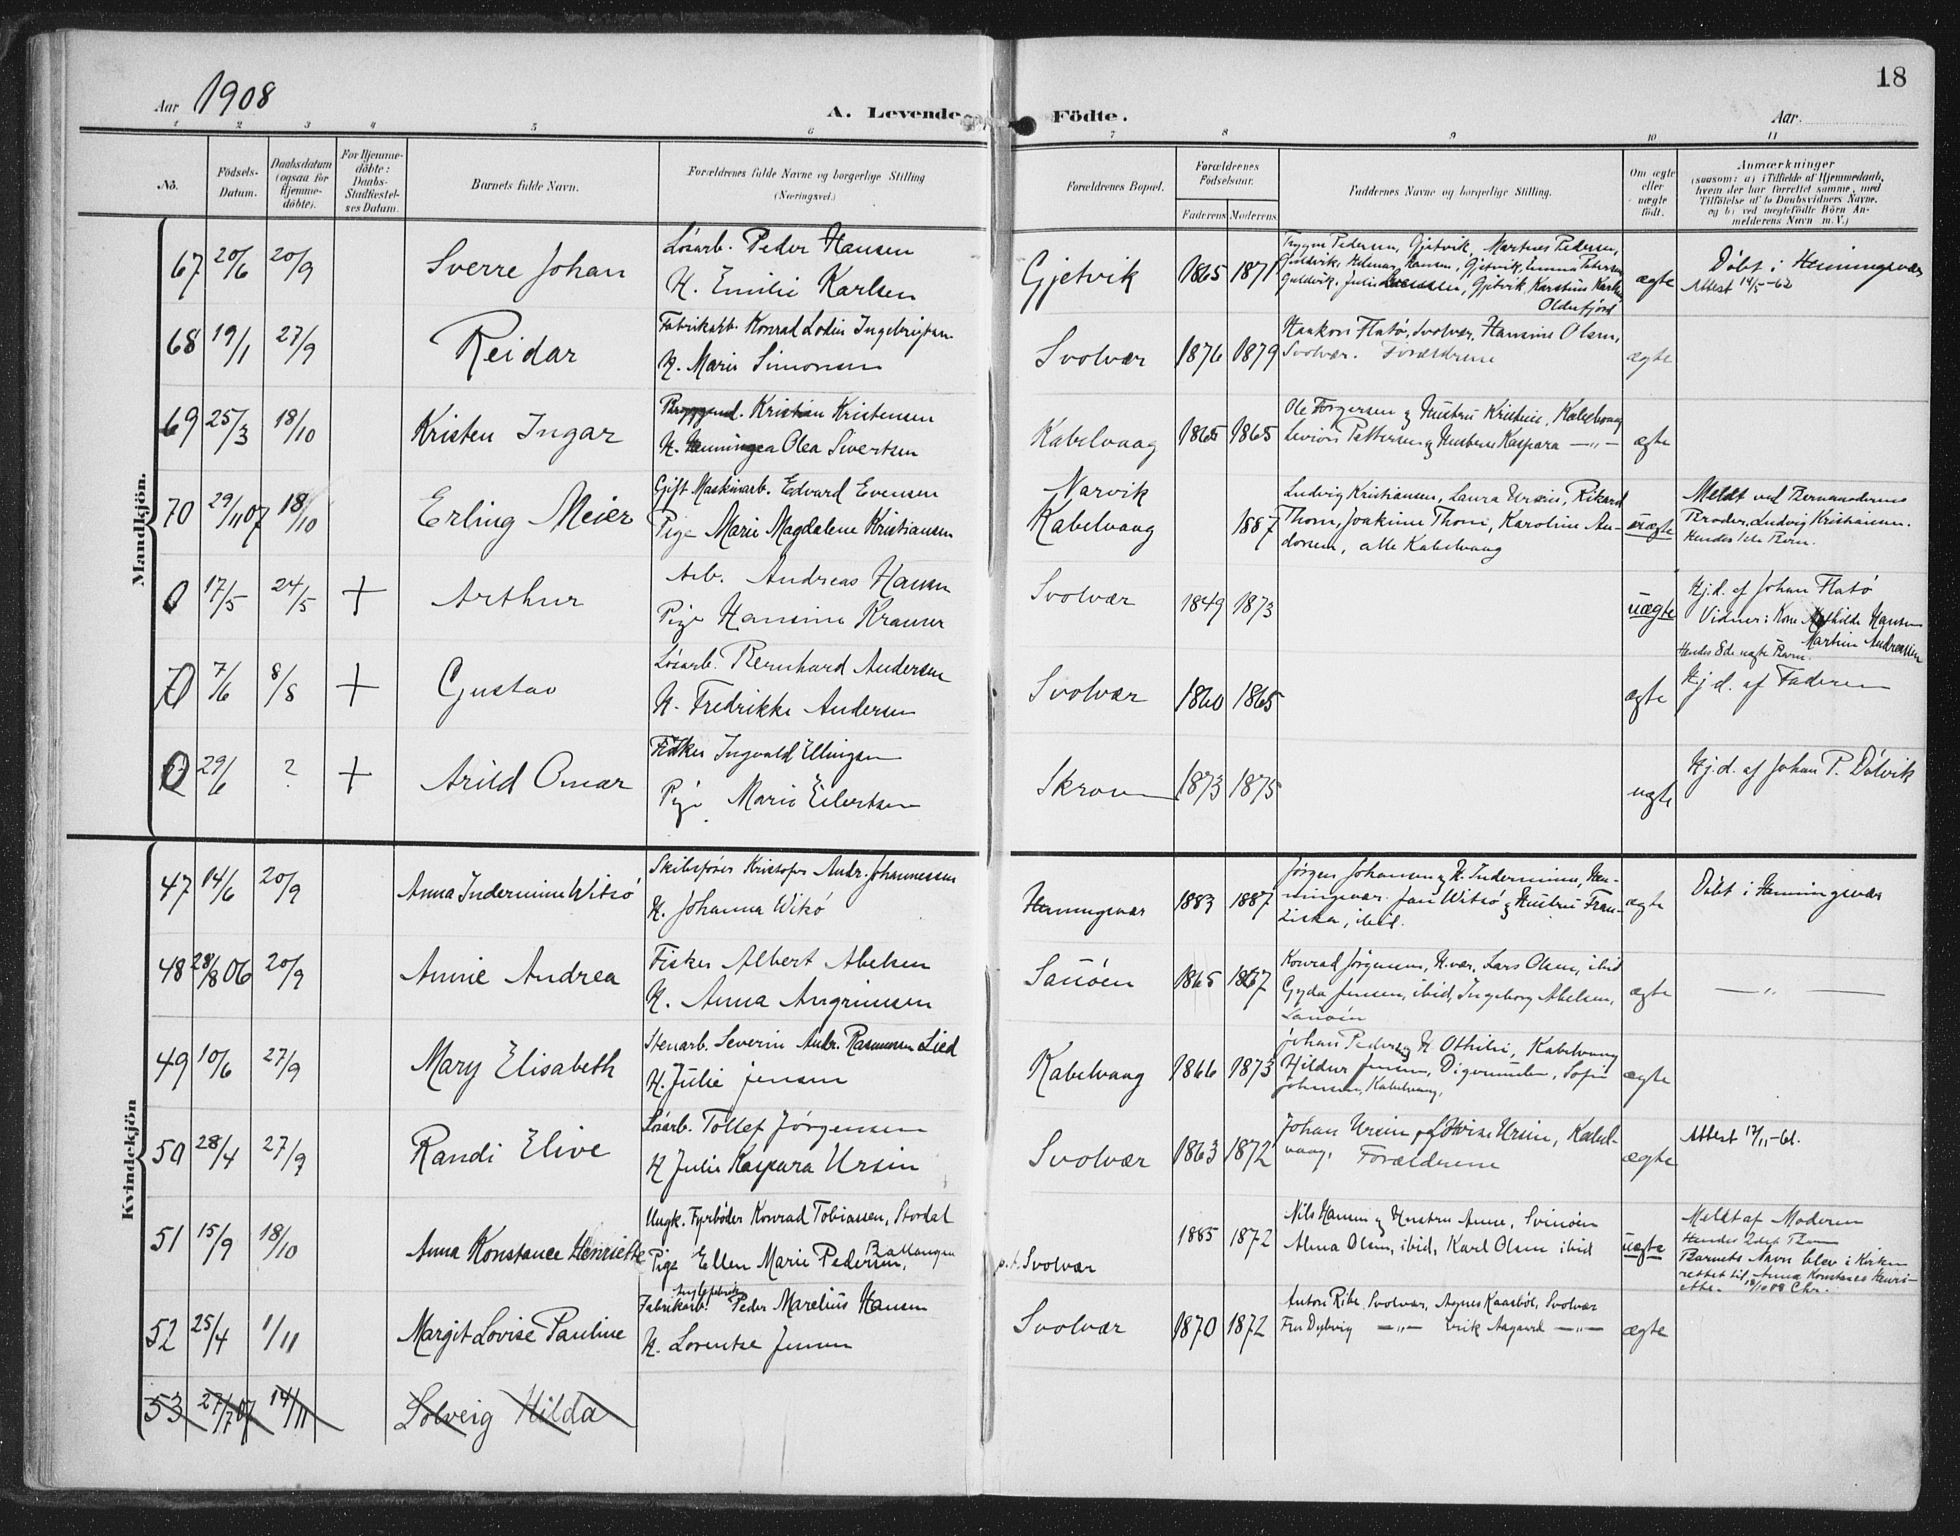 18
Aar 1908
A. Levende Födte.
Aar
1 2 3 4 5 6 7 8 9 10 11
No.
Födsels-
Datum.
Daabsdatum
(ogsaa for
Hjemme-
döbte).
For Hjemme-
döbte:
Daabs-
Stadfæstel-
ses Datum.
Barnets fulde Navn.
Forældrenes fulde Navne og borgerlige Stilling
(Næringsvei.)
Forældrenes Bopæl.
Forældrenes
Födselsaar.
Faderens Moderens
Faddernes Navne og borgerlige Stilling.
Om ægte
eller
uægte
födt.
Anmærkninger
(saasom: a) i Tilfælde af Hjemmedaab,
hvem der har forrettet samme, med
Tilföielse af to Daabsvidners Navne.
og b) ved uægtefödte Börn An-
melderens Navn m. V.)
Mandkjön.
67 20/6 20/9 Sverre Johan
Løsarb. Peder Hansen
H. Emilie Karlsen
Gjetvik 1865 1871
Trygve Pedersen, Gjetvik, Martines Pedersen,
Hilmar Hansen, Gjetvik, Emma Petersen
Julie Gjetvik, Karstine Karlsen
Olderfjord
ægte
Døbt i Henningsvær
Attest 14/5-62
68 19/1 27/9 Reidar
Fabrikarb. Konrad Lodin Ingebrigtsen
H. Marie Simonsen
Svolvær 1876 1879
Haakon Flatø, Svolvær, Hansine Olsen,
Svolvær. Forældrene
ægte
69 25/3 18/10 Kristen Ingar
Kristian Kristensen
H. Henningea Olea Sivertsen
Kabelvaag 1865 1865
Ole Torgersen og Hustru Kristine, Kabelvaag
Pettersen og Hustru Kaspara —"—
ægte
70 29/11 07 18/10 Erling Meier
Gift Maskinarb. Edvard Evensen
Pige Marie Magdalene Kristiansen
Narvik
Kabelvaag 1887
Ludvig Kristiansen, Laura Ursin, Rikard
Thom, Joakime Thom, Karoline An-
dersen, alle Kabelvaag
uægte
Meldt ved Barnemoderens
Broder, Ludvig Kristiansen.
Hendes 1ste Barn.
0 17/5 24/5 + Arthur
Arb. Andreas Hansen
Pige Hansine Kramer
Svolvær 1849 1873
uægte
Hj.d. af Johan Flatø
Vidner: Kone Mathilde Hansen
Martin Andreassen
Hendes 8de uægte Barn.
0 7/6 8/8 + Gustav
Løsarb. Bernhard Andersen
H. Fredrikke Andersen
Svolvær 1860 1865
ægte
Hj.d. af Faderen
0 29/6 ? + Arild Omar
Fisker Ingvald Ellingsen
Pige Marie Eilertsen
Skroven 1873 1875
uægte
Hj.d. af Johan P. Dølvik
Kvindekjön
47 14/6 20/9 Anna Inderminne Witsø
Skibsfører Kristofer Andr. Johannessen
H. Johanna Witsø
Henningsvær 1883 1887
Jørgen Johansen og H. Inderminne, Hen-
ningsvær. Jan Witsø og Hustru Fran-
ziska, ibid.
ægte
Døbt i Henningsvær
48 28/8 06 20/9 Annie Andrea
Fisker Albert Abelsen
H. Anna Angrimsen
Sauøen 1865 1867
Konrad Jørgensen, H.vær, Lars Olsen, ibid
Gyda Jensen, ibid, Ingeborg Abelsen,
Sauøen
ægte
—"—
49 10/6 27/9 Mary Elisabeth
Stenarb. Severin Andr. Rasmussen Lied
H. Julie Jensen
Kabelvaag 1866 1873
Johan Peder og H Othilie, Kabelvaag
Hildur Jensen, Digermulen, Sofie
Johnsen, Kabelvaag.
ægte
50 28/4 27/9 Randi Elive
Løsarb. Tollef Jørgensen
H Julie Kaspara Ursin
Svolvær 1863 1872
Johan Ursin og Lovise Ursin, Kabel-
vaag, Forældrene
ægte
Attest 17/11-61.
51 15/9 18/10 Anna Konstance Henriette
Ungk. Fyrbøder Konrad Tobiassen, Stordal
Pige Ellen Marie Pedersen, Ballangen
p.t. Svolvær 1885 1872
Nils Hansen og Hustru Anne, Svinøen
Alma Olsen, ibid, Karl Olsen ibid
uægte
Meldt af Moderen
Hendes 2det Barn
Barnets Navn blev i Kirken
rettet til Anna Konstance Henri-
ette. 18/10 08 Chr.
52 25/4 1/11 Margit Lovise Pauline
Fabrikarb. Peder Marelius Hansen
H. Lorentse Jensen
Svolvær 1870 1872
Anton Ribe, Svolvær, Agnes Kaarbøe, Svolvær
Fru Dybvig —"— Erik Aagaard —"—
ægte
53 27/7 07 14/11 Solveig Hilda